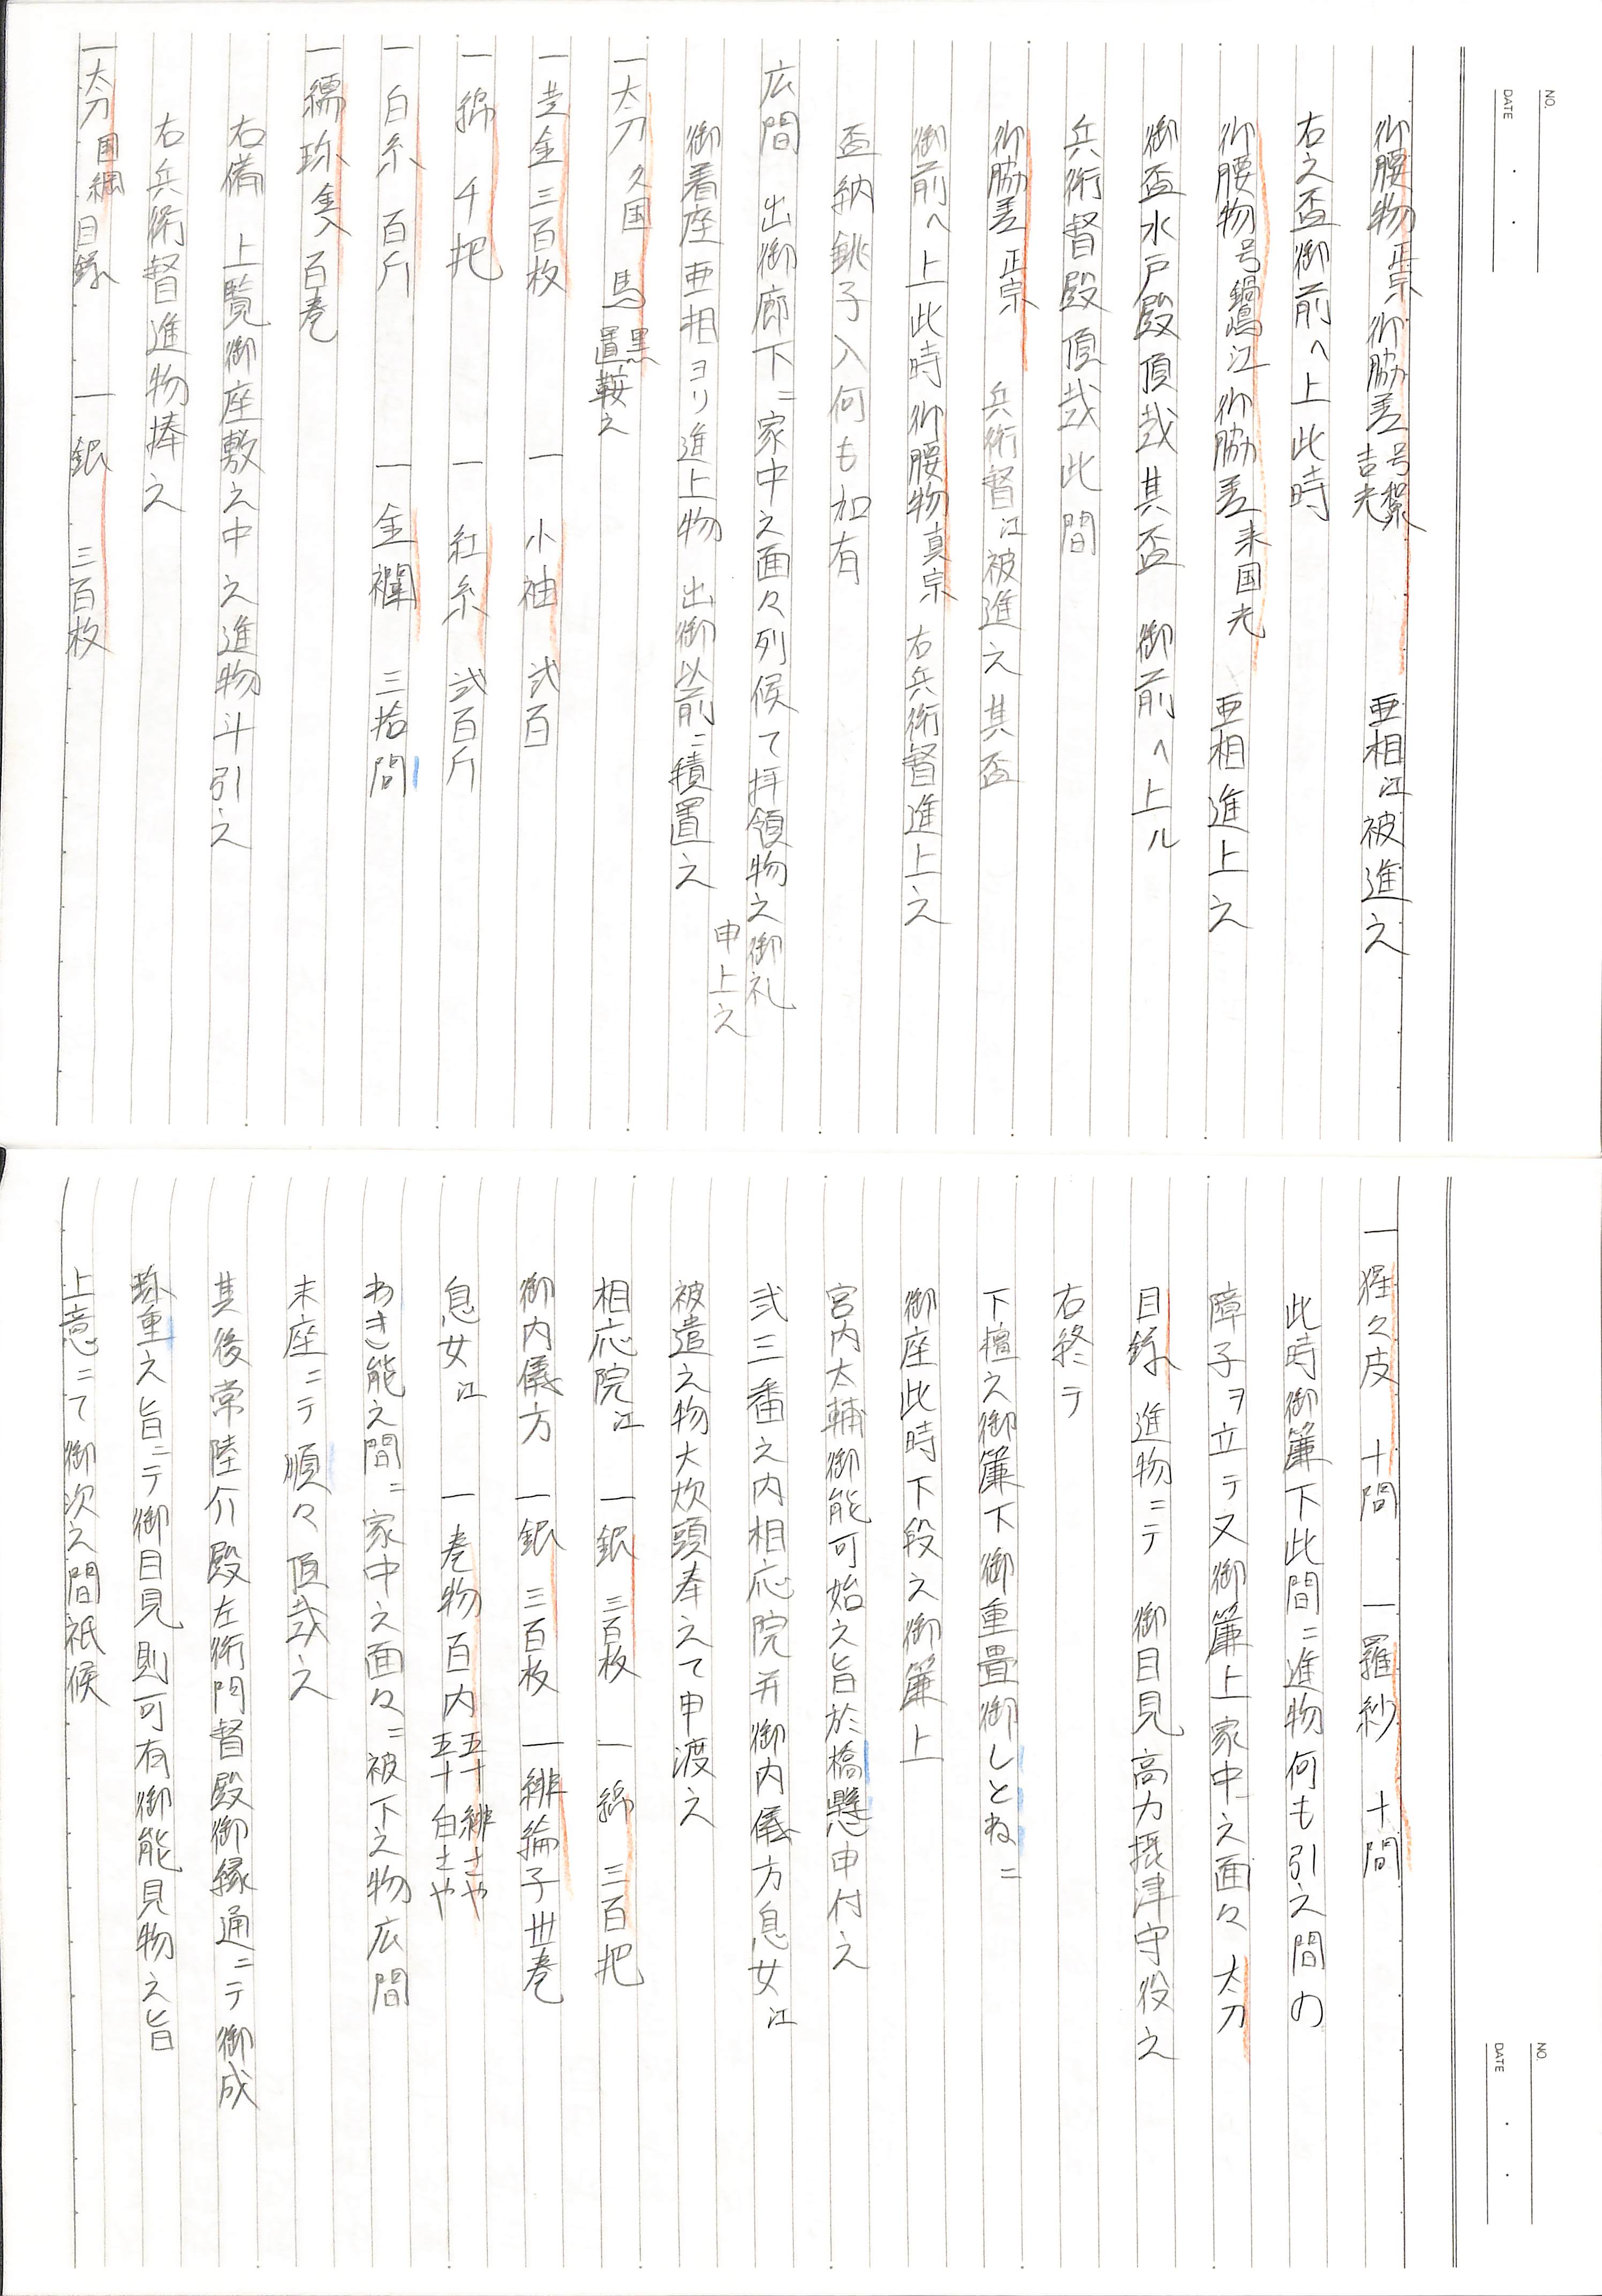 NO.
DATE ・ ・
御腰物 正宗 御脇差 号 吉光 亜相江被進之
右之盃御前へ上此時
御腰物 号鍋島江 御脇差 来国光 亜相進上之
御盃水戸殿頂戴其盃 御前へ上ル
兵衛督殿頂戴此間
御脇差 正宗 兵衛督江被進之其盃
御前へ上此時御腰物 真宗 右兵衛督進上之
盃納銚子入何も加有
広間 出御廊下ニ家中之面々列候て拝領物之御礼申上之
御着座亜相ヨリ進上物 出御以前ニ積置之
一太刀 久国 馬 黒 置鞍之
一黄金 三百枚 一小袖 弐百
一綿 千把 一紅糸 弐百斤
一白糸 百斤 一金襴 三拾間
一繻珍 金入 百巻
右備 上覧御座敷之中之進物斗引之
右兵衛督進物捧之
一太刀 国綱 目録 一銀 三百枚
NO.
DATE ・ ・
一猩々皮 十間 一羅紗 十間
此時御簾下此間ニ進物何も引之間の
障子ヲ立テ又御簾上家中之面々太刀
目録進物ニテ 御目見高力摂津守役之
右終テ
下檀之御簾下御重畳御しとねニ
御座此時下段之御簾上
宮内太輔御能可始之旨於橋懸申付之
弐三番之内相応院并御内儀方息女江
被遣之物大炊頭奉之て申渡之
相応院江 一銀 三百枚 一綿 三百把
御内儀方 一銀 三百枚 一緋綸子 卅巻
息女江 一巻物百内 五十緋さや 五十白さや
わき能之間ニ家中之面々ニ被下之物広間
末座ニテ順々頂戴之
其後常陸介殿左衛門督殿御縁通ニテ御成
珍重之旨ニテ御目見則可有御能見物之旨
上意ニて御次之間祗候